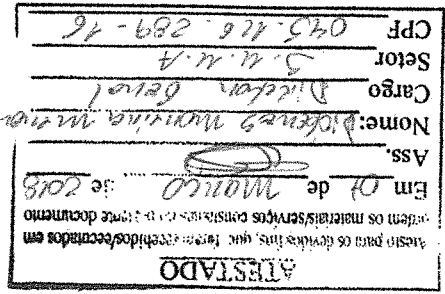 ATESTADO
Atesto para os devidos fins, que foram recebidos/executados em
ordem os materiais/serviços constantes no presente documento
Em 07 de março de 2018
Ass.
Nome: Mauricio
Cargo Diretor Geral
Setor S.M.M.A
CPF 043.116.289-16